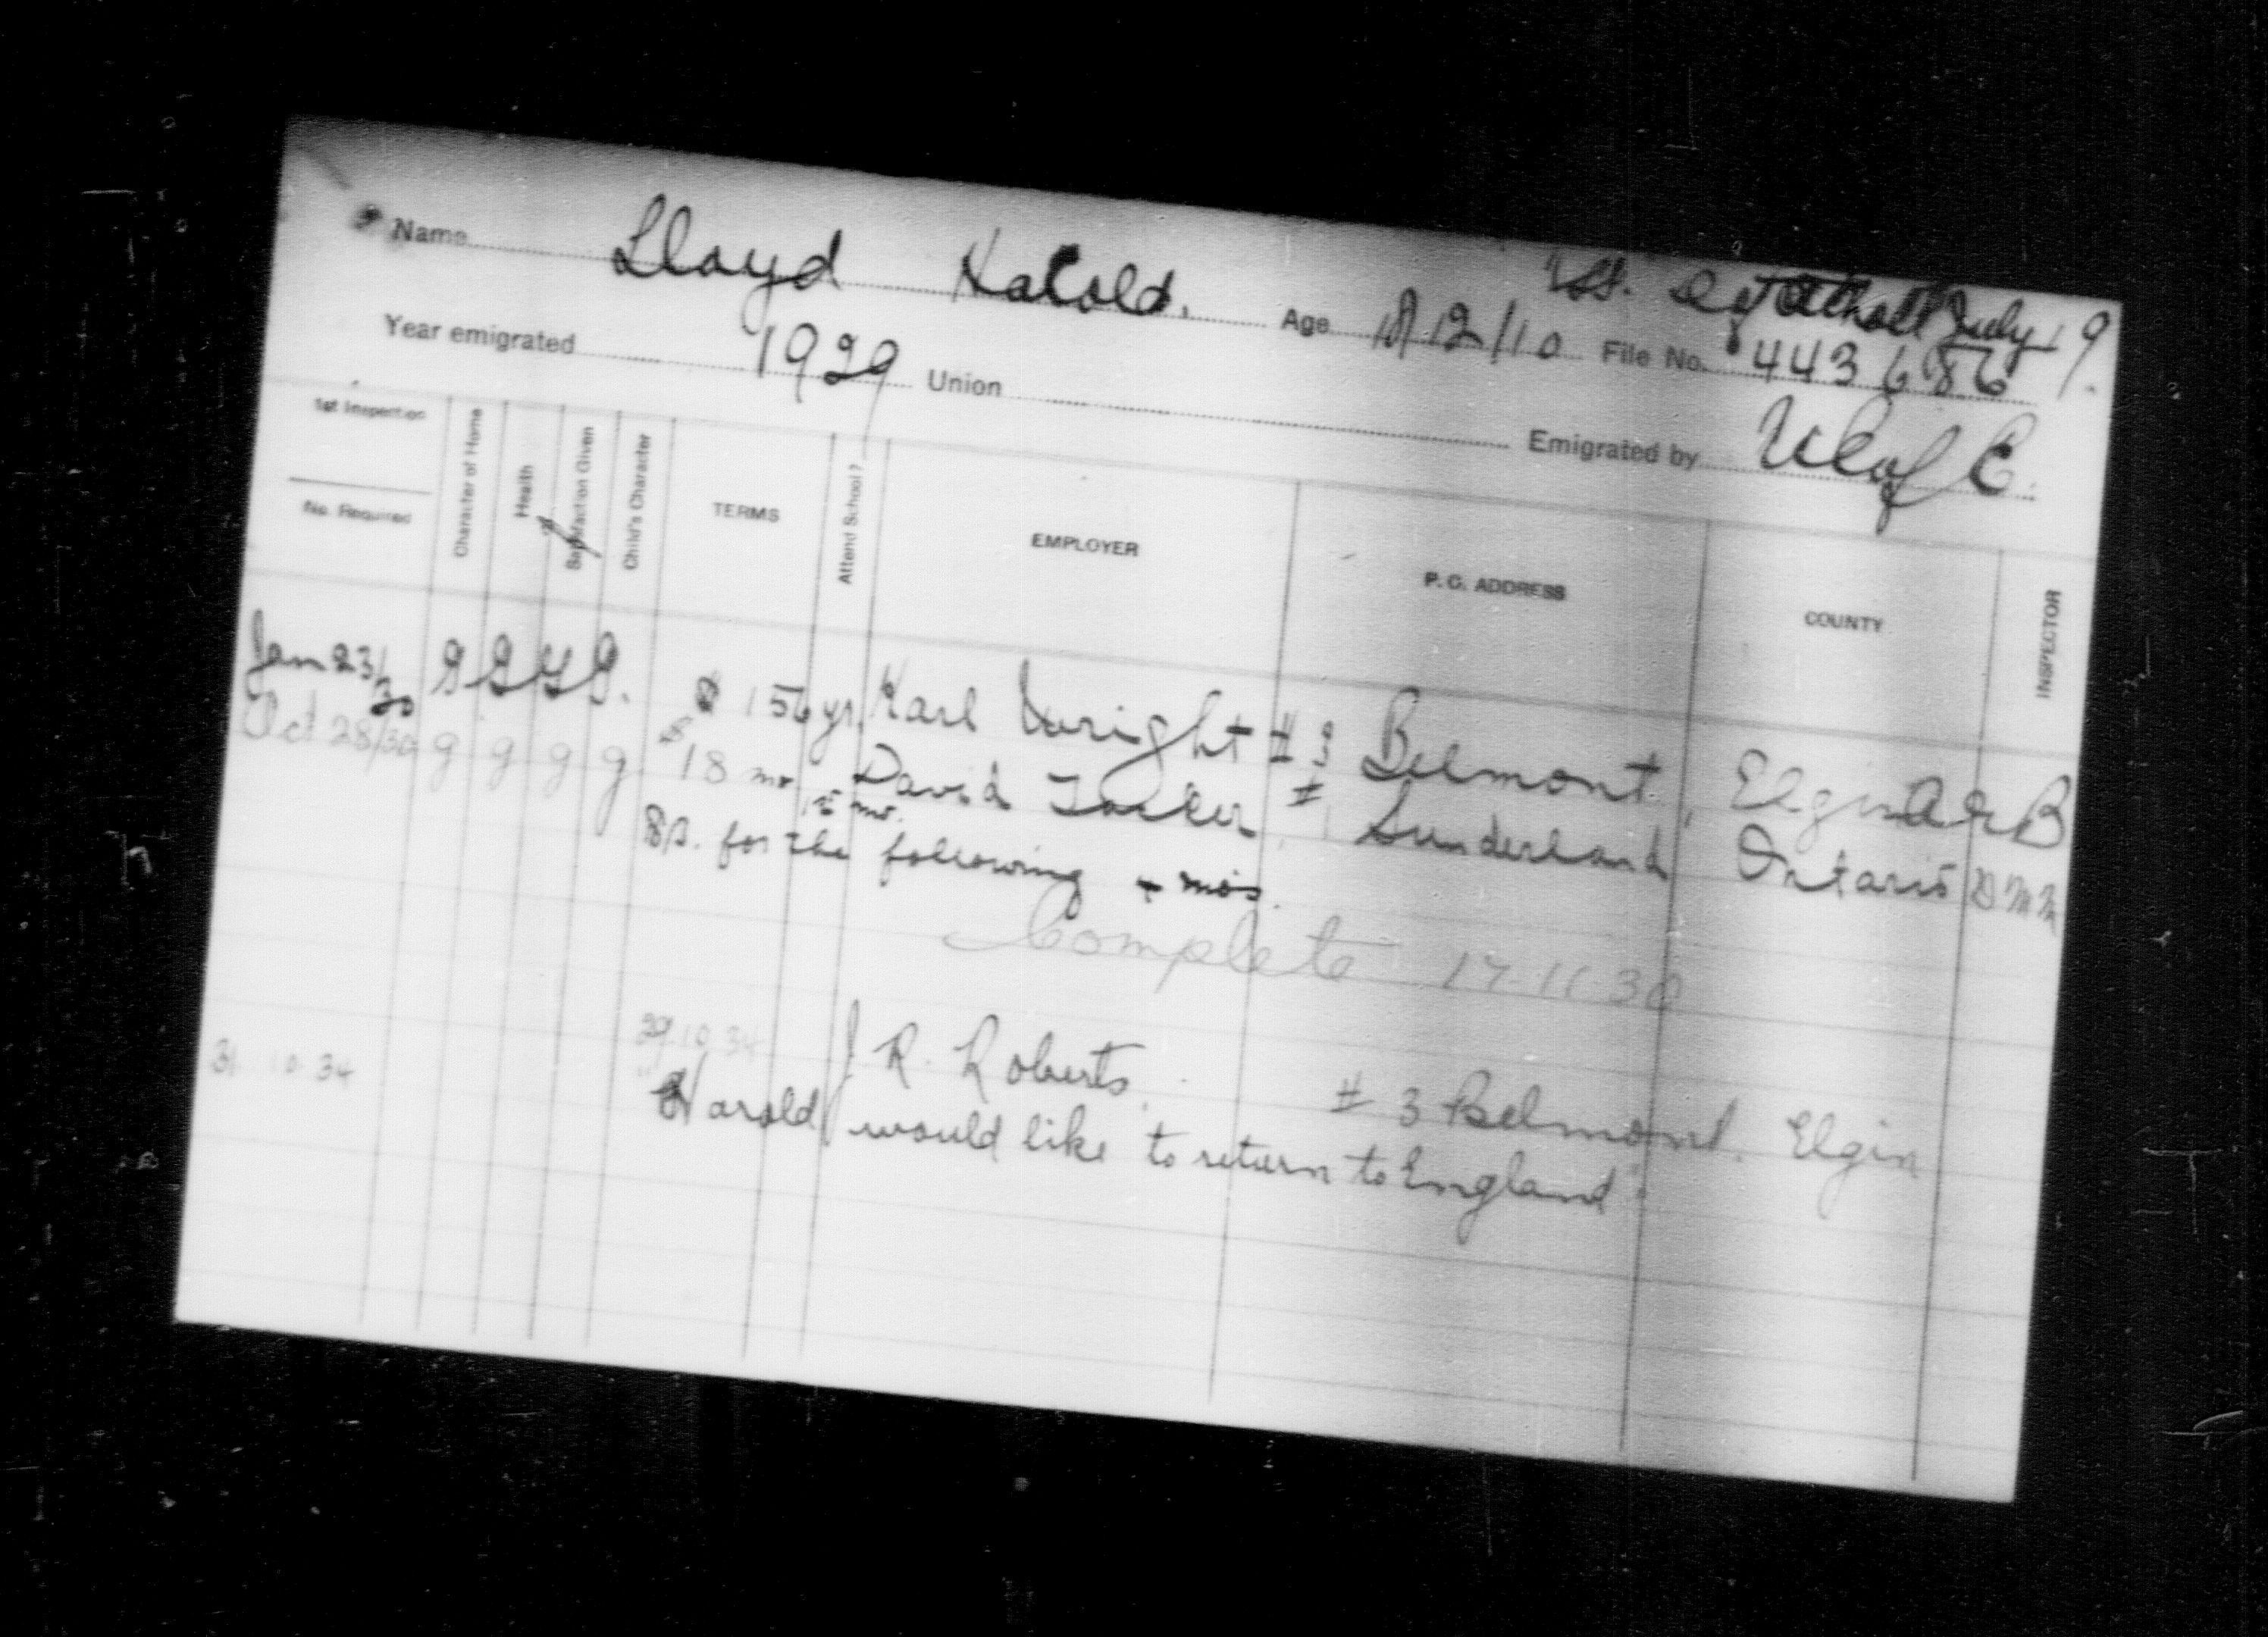 July 19
Name Lloyd Harold. Age 18/12/10 File No. 443686
Year emigrated 1929 Union Emigrated by U C of E.
1st Inspection
No. Required
Character of Home
Health
Satisfaction Given
Child's Character
TERMS
Attend School?
EMPLOYER
P. O. ADDRESS
COUNTY
INSPECTOR
Jan 23/30 G G G G. $156 yr. Karl Wright #3 Belmont, Elgin
Oct 28/30 g g g g $18 mo David # Sunderland Ontario
15 mo.
for the following mos.
Complete 17-11-30
31 10 34 29 10 34 J R. Roberts. #3 Belmont. Elgin
"Harold would like to return to England".